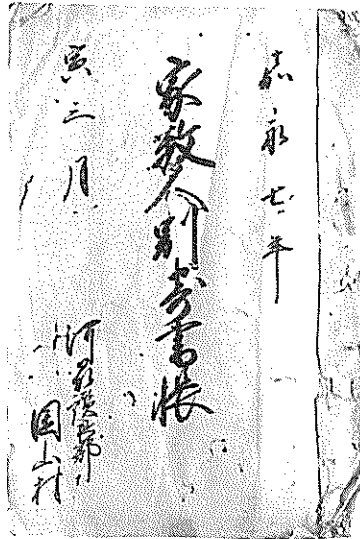 嘉永七年
家数人別書寄帳
寅三月
河州茨田郡
国山村